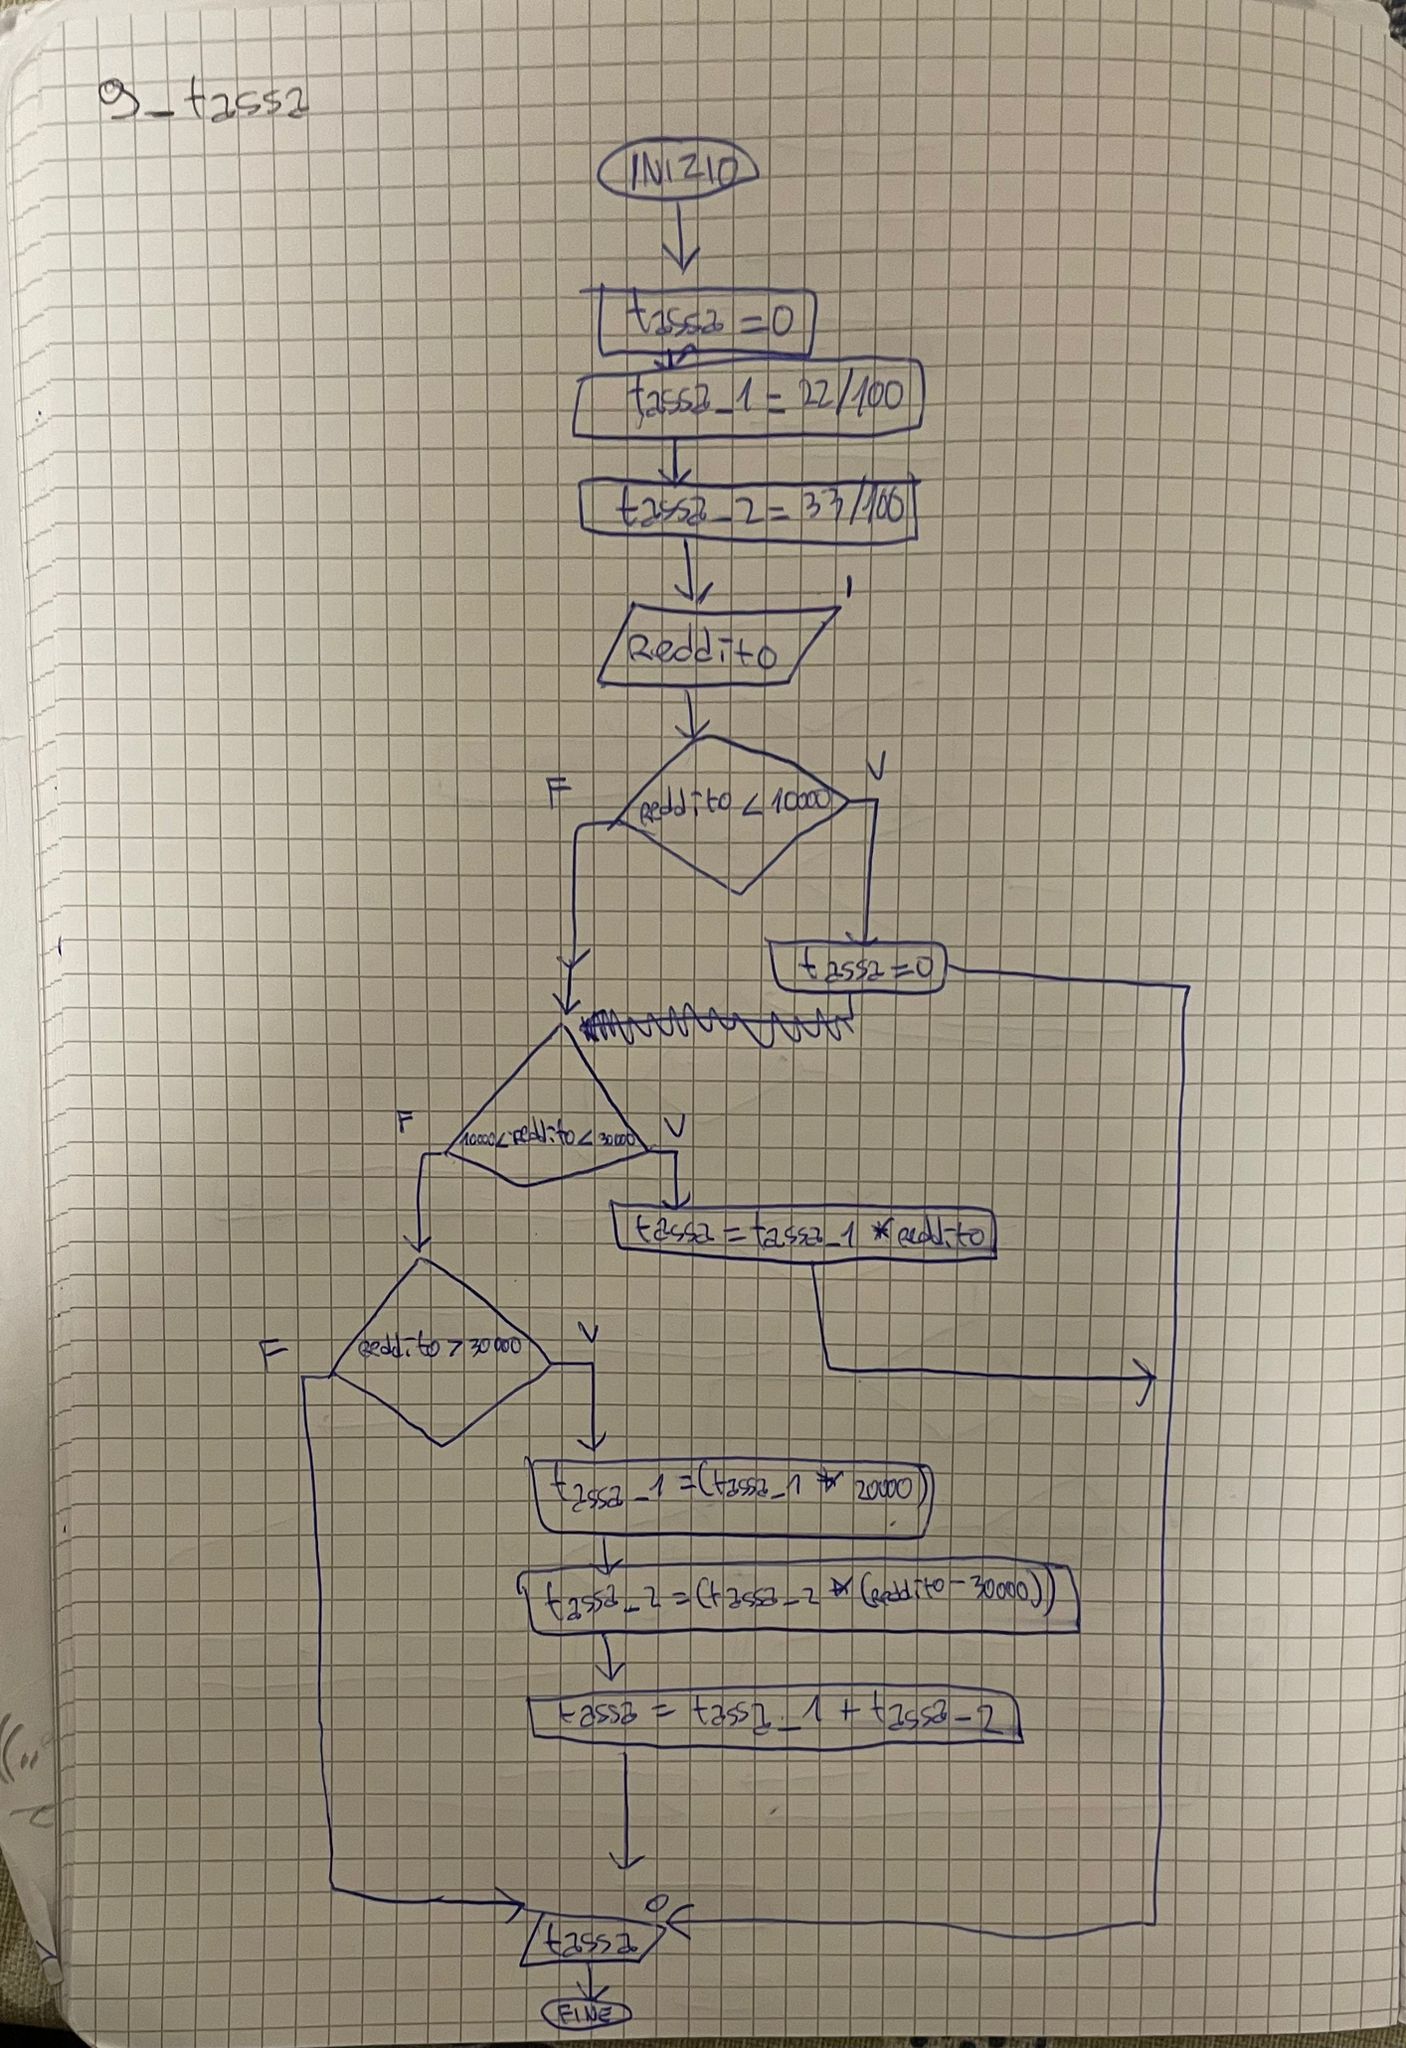 9_tassa
INIZIO
tassa = 0
tassa_1 = 22/100
tassa_2 = 33/100
I
Reddito
F
V
Reddito < 10000
tassa = 0
F
V
10000 < Reddito < 30000
tassa = tassa_1 * Reddito
F
V
Reddito > 30000
tassa_1 = (tassa_1 * 20000)
tassa_2 = (tassa_2 * (Reddito - 30000))
tassa = tassa_1 + tassa_2
O
tassa
FINE